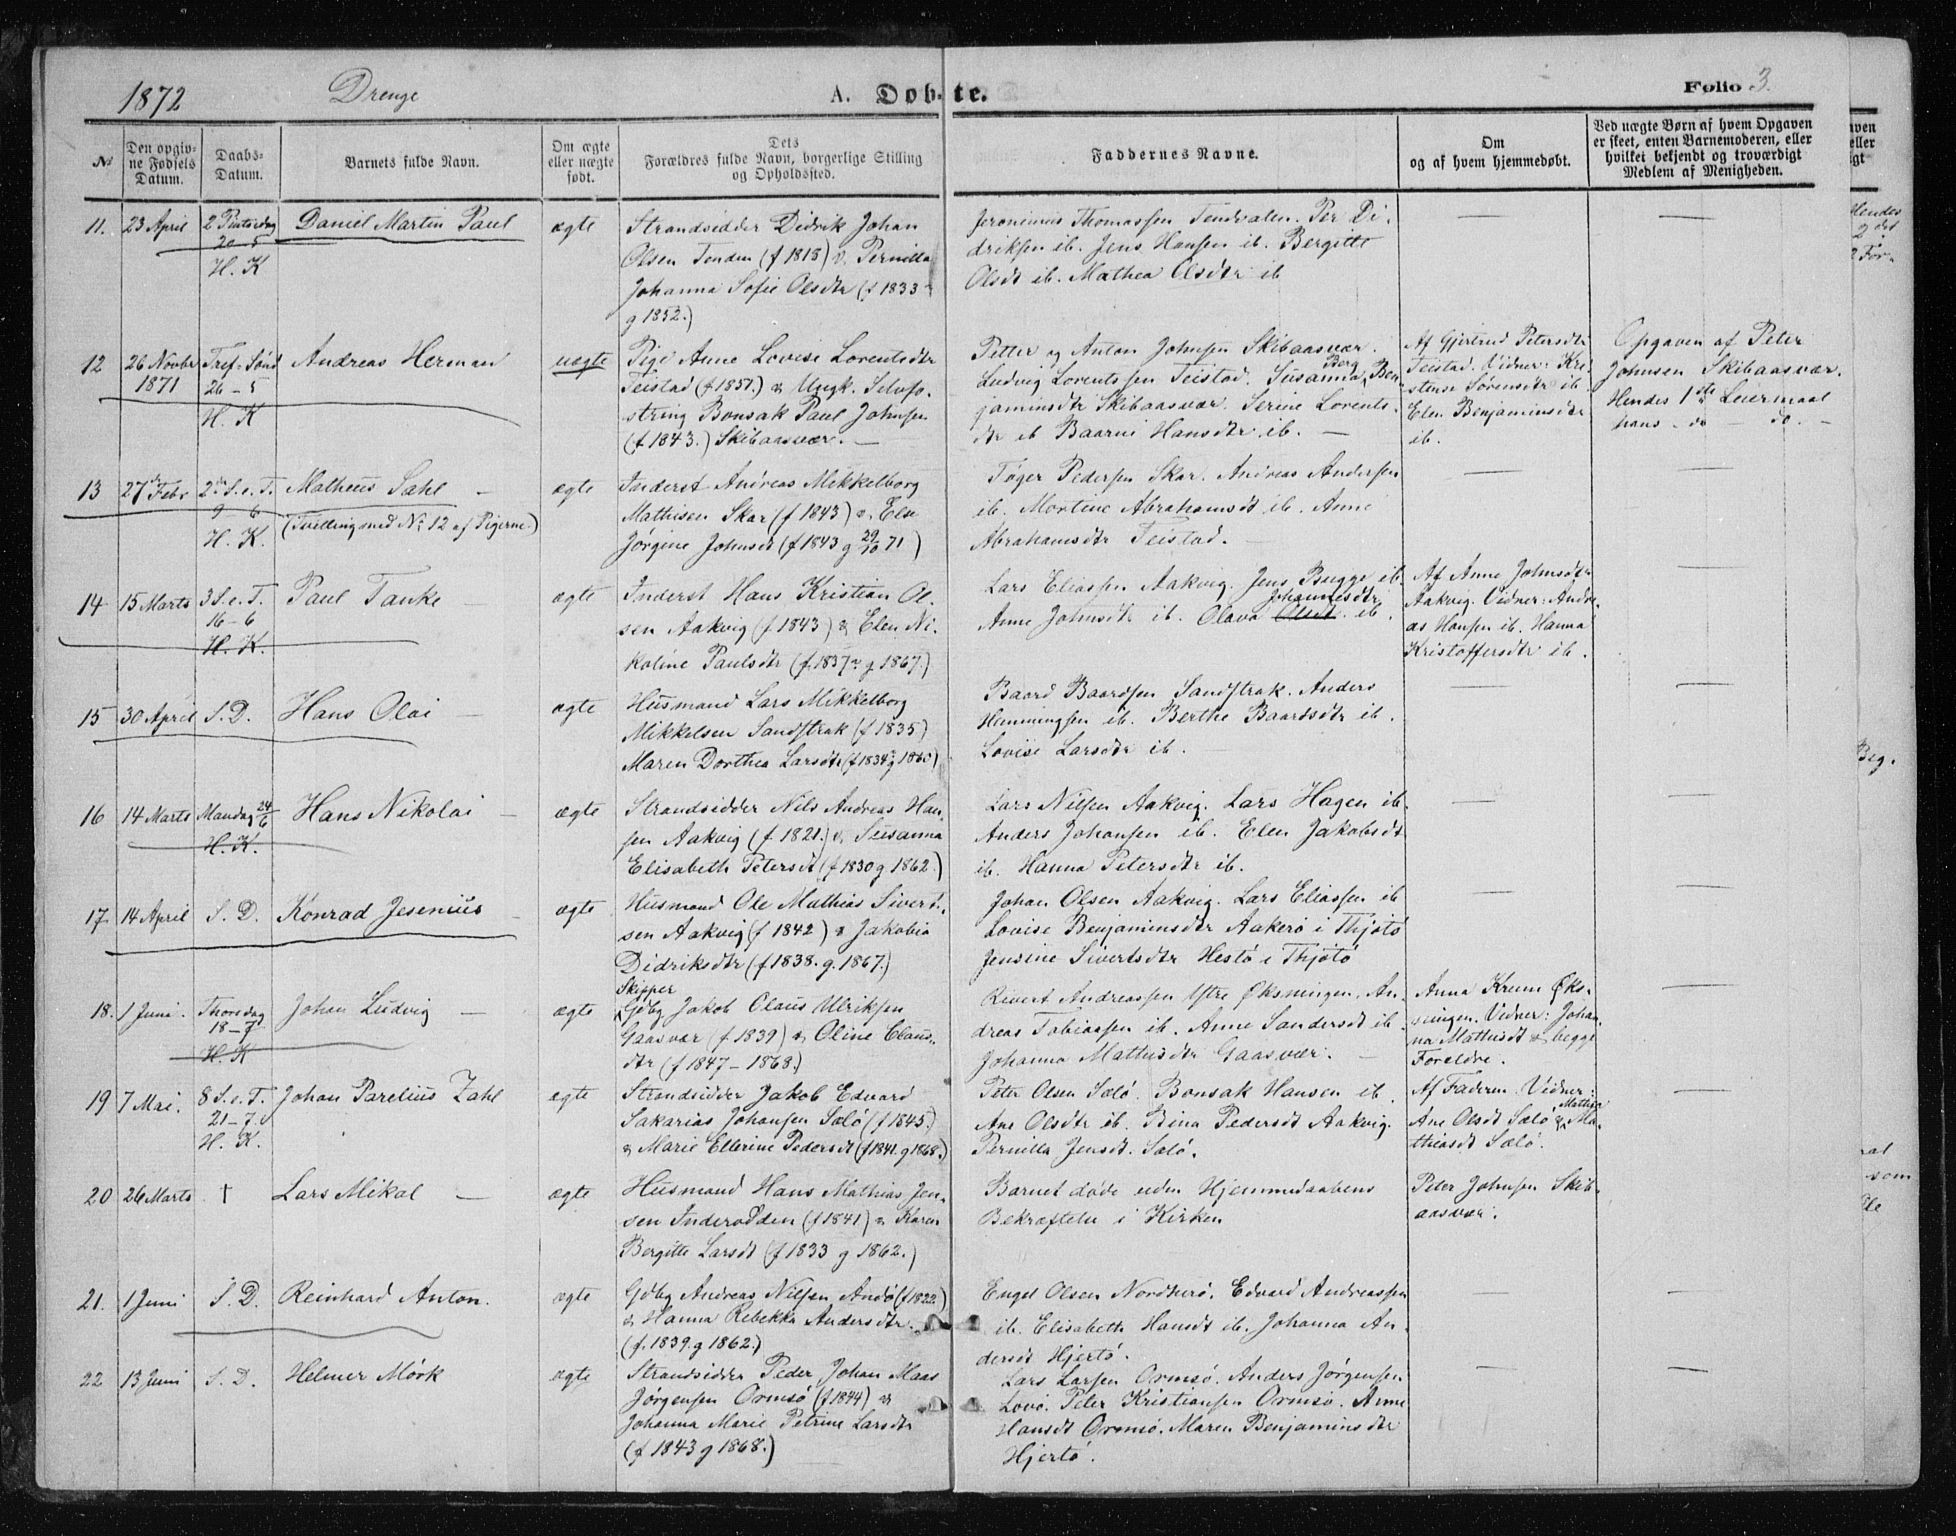 1872 Drenge A. Døbte. Folio 3.
№
Den opgivne Fødsels Datum.
Daabs-Datum.
Barnets fulde Navn.
Om ægte eller uægte født.
Dets Forældres fulde Navn, borgerlige Stilling og Opholdssted.
Faddernes Navne.
Om og af hvem hjemmedøbt.
Ved uægte Børn af hvem Opgaven er skeet, enten Barnemoderen, eller hvilket bekjendt og troværdigt Medlem af Menigheden.
11. 23 April 2 Pintsedag 20-5 H. K Daniel Martin Paul ægte
Strandsidder Didrik Johan
Olsen Tenden (f 1818) & Pernilla
Johanna Sofie Olsdtr (f 1833
g 1852.)
Jeronimus Thomassen Tendvalen. Per Di-
driksen ib. Jens Hansen ib. Bergitte
Olsdt ib. Mathea Olsdtr ib
12 26 Novbr 1871 Tref. Sönd 26-5 H. K Andreas Herman uægte
Pige Anne Lovise Lorentsdtr
Teistad (f 1851.) & Ungk. Selvfo-
string Bonsak Paul Johnsen
(f 1843.) Skibaasvær.
Petter og Anton Johnsen Skibaasvær.
Ludvig Lorentssen Teistad. Susanna Berg Ben-
jaminsdtr Skibaasvær. Serine Lorents-
dtr ib Baarni Hansdtr ib.
Af Gjertrud Petersdtr
Teistad. Vidner: Kri-
stense Sørensdtr ib.
Elen Benjaminsdtr
ib.
Opgaven af Peter
Johnsen Skibaasvær.
Hendes 1ste Leiermaal
hans do do.
13 27de Febr 2den S. e. T. 9-6 H. K. Matheus Sahl
(Tvilling med No 12 af Pigerne) ægte
Inderst Andreas Mikkelborg
Mathisen Skar (f 1843) & Else
Jørgine Johnsdt (f 1843 g 29/10 71)
Tøger Pedersen Skar. Andreas Andersen
ib. Mortine Abrahamsdt ib. Anne
Abrahamsdtr Teistad.
14 15 Marts 3 S. e. T. 16-6 H. K. Paul Tanke ægte
Inderst Hans Kristian Ol-
sen Aakvig (f 1843) & Elen Ni-
koline Paulsdtr (f. 1837 g 1867.)
Lars Eliassen Aakvig. Jens Bugge ib.
Anne Johnsdtr ib. Olava Olsdt Johannesdtr ib.
Af Anne Johnsdtr
Aakvig. Vidner: Andre-
as Hansen ib. Hanna
Kristoffersdtr ib.
15 30 April S. D. Hans Olai ægte
Husmand Lars Mikkelborg
Mikkelsen Sandstrak (f 1835)
Maren Dorthea Larsdtr (f 1834 g 1860)
Baard Baardsen Sandstrak. Anders
Hemmingsen ib. Berthe Baardsdtr ib.
Lovise Larsdtr ib.
16 14 Marts Mandag 24/6 H. K. Hans Nikolai ægte
Strandsidder Nils Andreas Han-
sen Aakvig (f. 1821.) & Susanna
Elisabeth Petersdt (f 1830 g 1862.)
Lars Nilsen Aakvig. Lars Hagen ib.
Anders Johansen ib. Elen Jakobsdt
ib. Hanna Petersdtr ib.
17. 14 April S. D. Konrad Jesenius ægte
Husmand Ole Mathias Sivert-
sen Aakvig (f 1842) & Jakobia
Didriksdtr (f 1838. g. 1867.)
Johan Olsen Aakvig. Lars Eliassen ib
Lovise Benjaminsdtr Aakerø i Thjøtø
Jensine Sivertsdtr Hestø i Thjøtø
18. 1 Juni. Thorsdag 18-7 H. K Johan Ludvig ægte
Skipper
Gdbg Jakob Olaus Ulriksen
Gaasvær (f 1839) & Oline Claus-
dtr (f 1847 - 1868.)
Rivert Andreassen Ytre Øksningen. An-
dreas Tobiassen ib. Anne Sandersdt ib
Johanna Mathisdtr Gaasvær.
Anna Krum Øks-
ningen. Vidner: Johan-
na Mathisdt & begge
Foreldre.
19 7 Mai. 8 S. e. T. 21-7. H. K. Johan Parelius Zahl ægte
Strandsidder Jakob Edvard
Sakarias Johansen Solø (f 1845.)
& Marie Ellerine Pedersdt (f 1841. g 1868.)
Peter Olsen Solø. Bonsak Hansen ib.
Ane Olsdtr ib. Stina Pedersdt Aakvig.
Pernilla Jensdt. Solø.
Af Faderen. Vidner:
Ane Olsdt Solø & Mathea Ma-
thiasdt Solø.
20 26 Marts † Lars Mikal ægte
Husmand Hans Mathias Jen-
sen Inderodden (f 1841) & Karen
Bergitte Larsdt (f 1833 g 1862.)
Barnet døde uden Hjemmedaabens
Bekræftelse i Kirken
Peter Johnsen Skib-
aasvær.
21. 1 Juni S. D. Reinhard Anton. ægte
Gdbg Andreas Nilsen Andø (f 1822)
& Hanna Rebekka Andersdtr.
(f. 1839. g 1862.)
Engel Olsen Nordherø. Edvard Andreassen
ib. Elisabeth Hansdt ib. Johanna An-
dersdt Hjertø.
22 13 Juni S. D. Helmer Mörk ægte
Strandsidder Peder Johan Maas
Jørgensen Ormsø (f 1844) &
Johanna Marie Petrine Larsdtr
(f 1843 g 1868.)
Lars Larsen Ormsø. Anders Jørgensen
Lovø. Peter Kristiansen Ormsø. Anne
Hansdt Ormsø. Maren Benjaminsdtr
Hjertø.